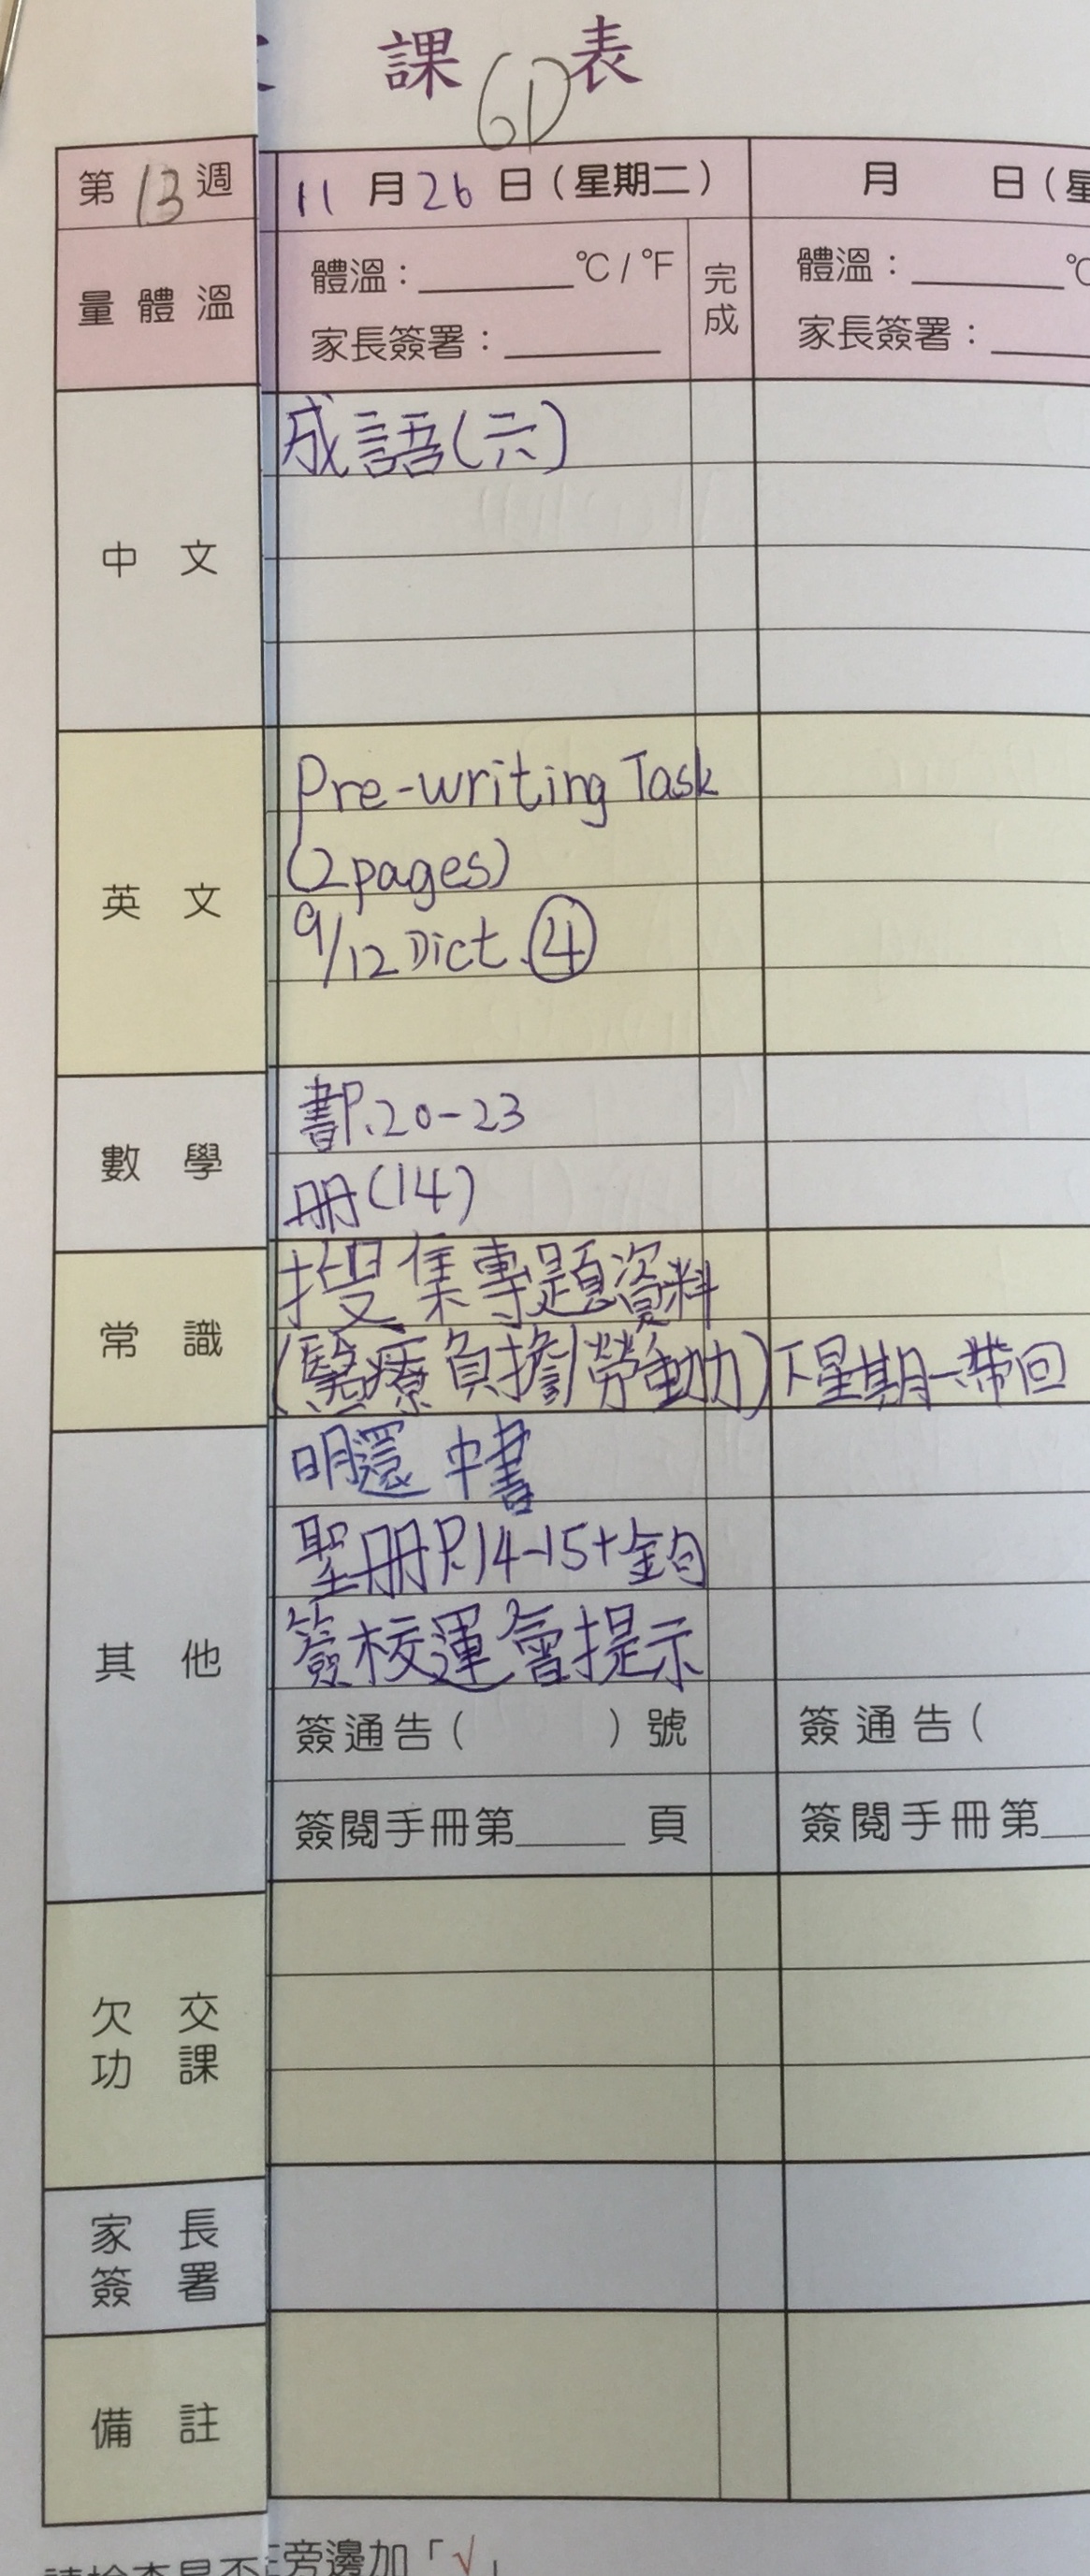 課 6D 表
第 13 週
11 月 26 日（星期二）
月 日（星
量體溫
體溫：______℃/℉
完成
體溫：______℃
家長簽署：______
家長簽署：
中文
成語(六)
英文
Pre-writing Task
(2pages)
9/12 Dict. ④
數學
書P.20-23
冊(14)
常識
搜集專題資料
(醫療負擔|勞動力)下星期一帶回
其他
明還 中書
聖冊P.14-15+鈞
簽校運會提示
簽通告（ ）號
簽通告（
簽閱手冊第______頁
簽閱手冊第
欠交功課
家長簽署
備註
旁邊加「√」